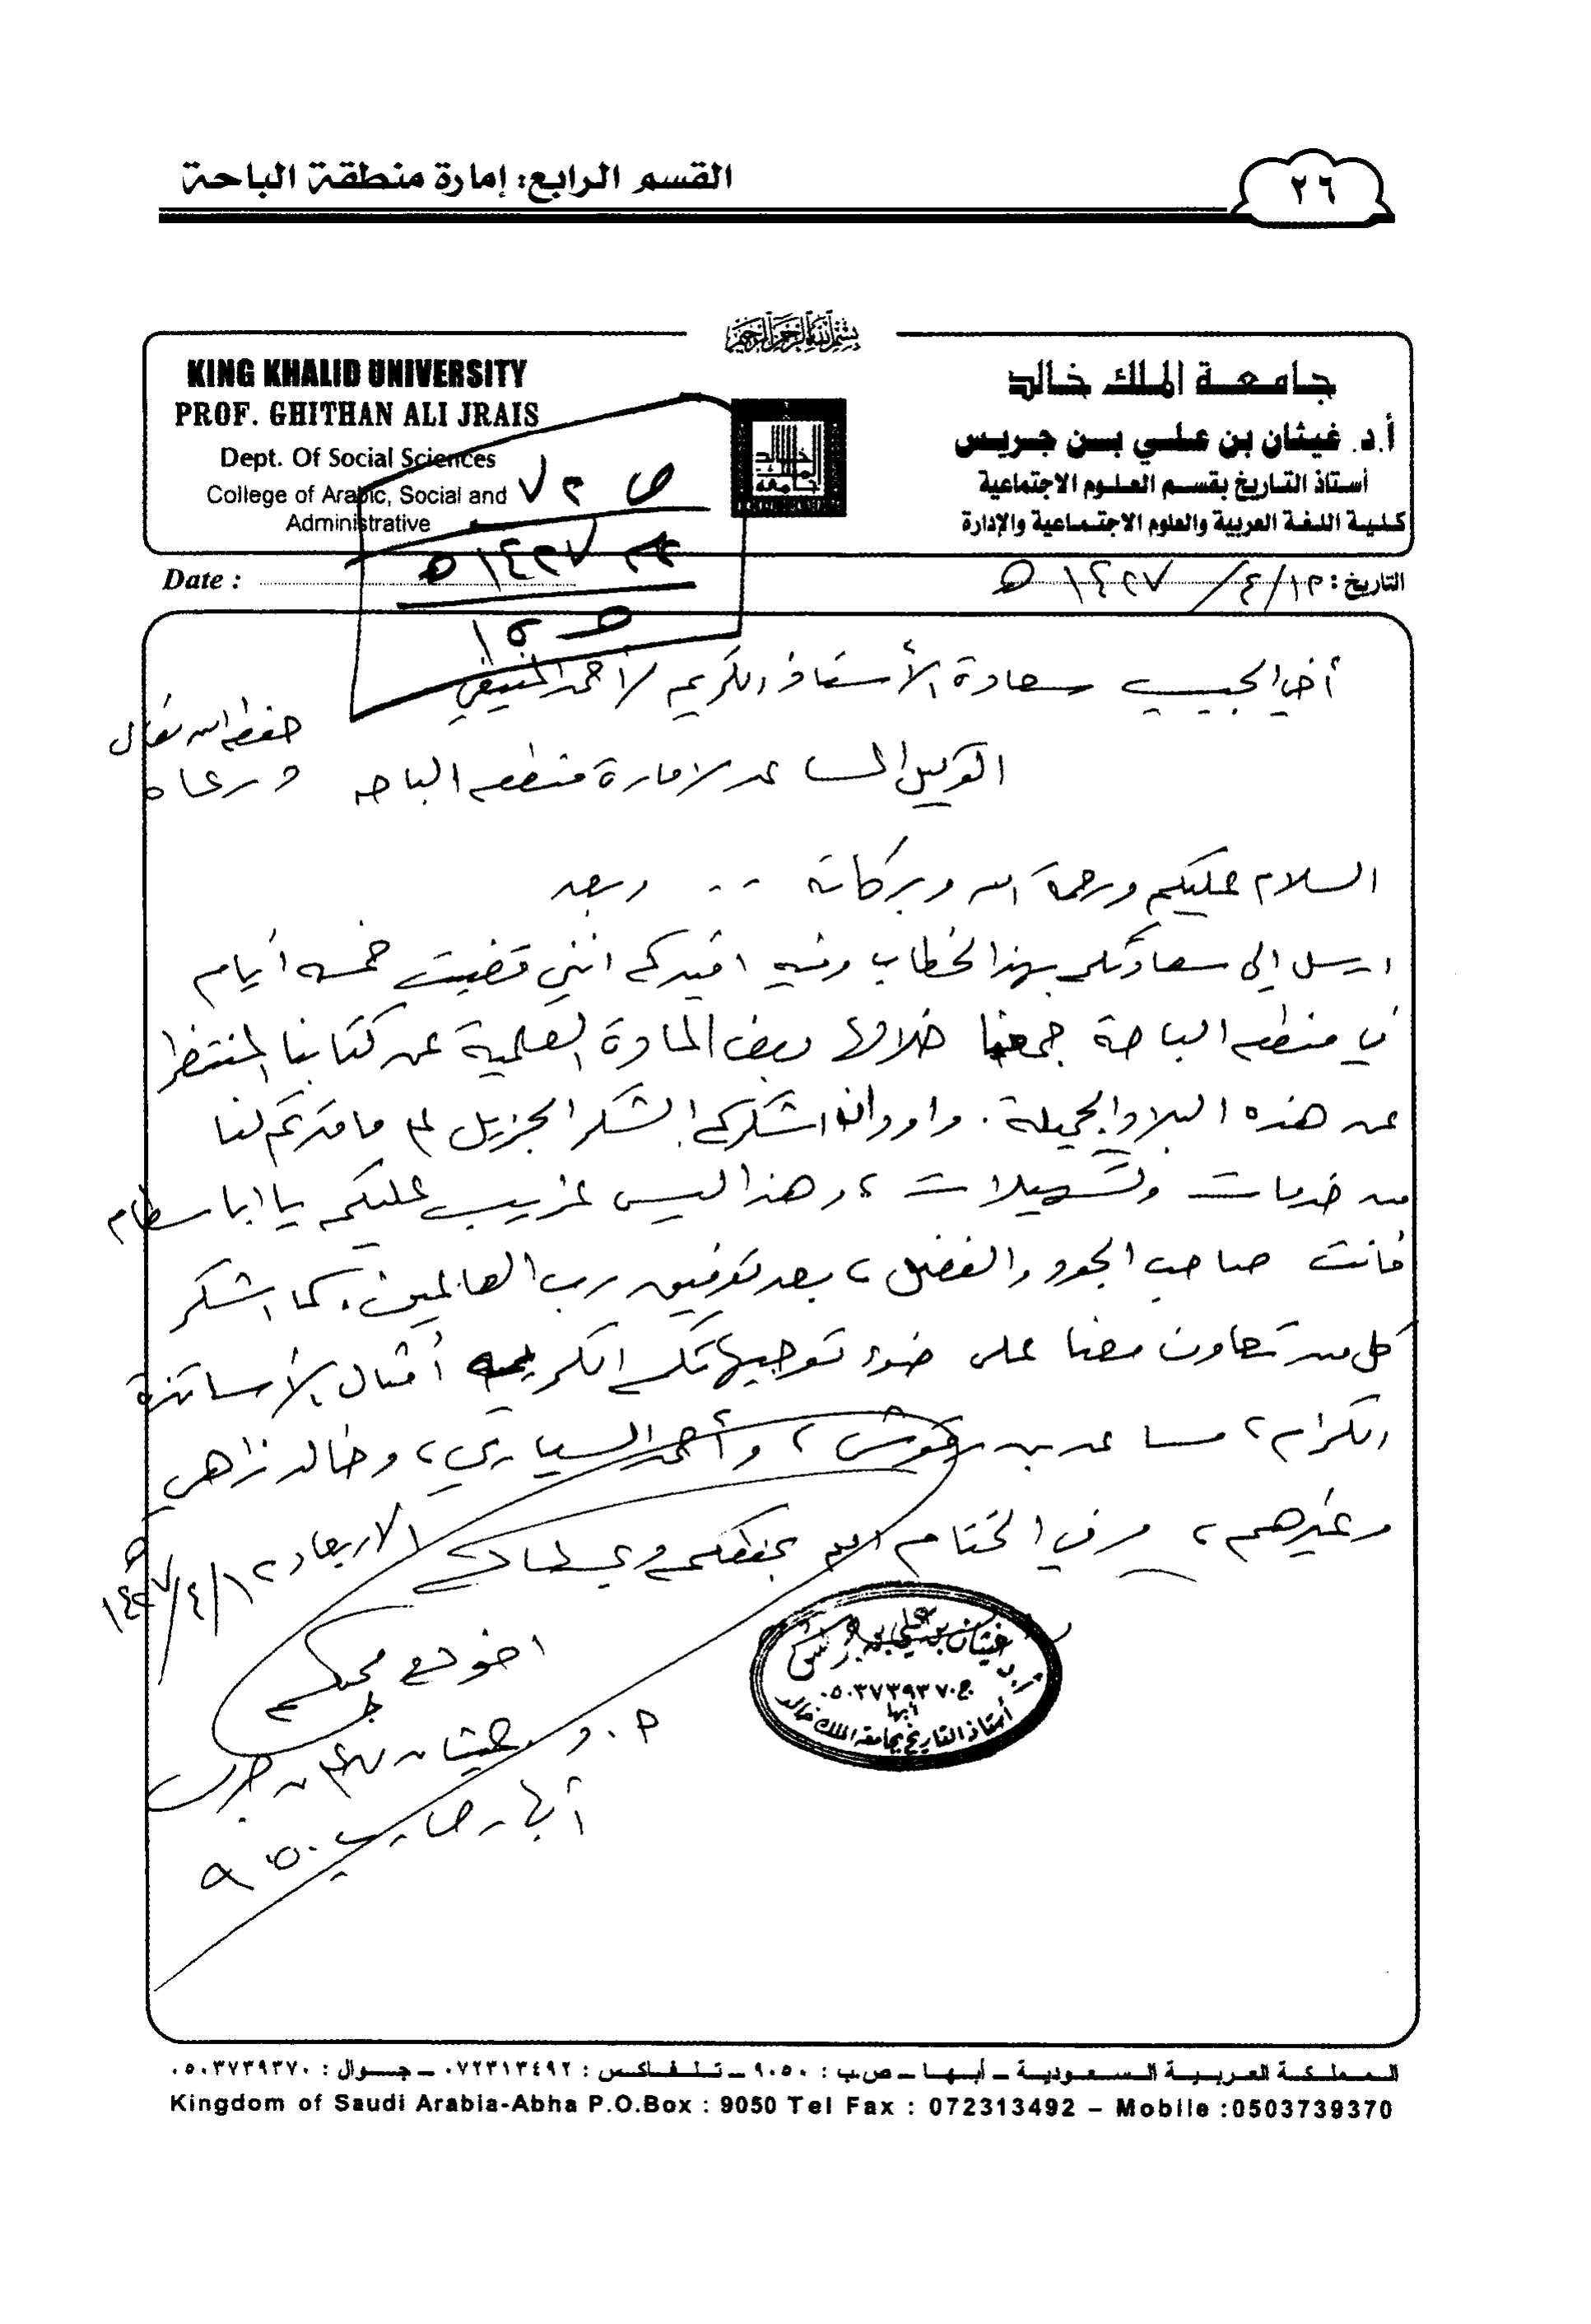 القسم الرابع: إمارة منطقة الباحة
٢٦
بسم الله الرحمن الرحيم
جامعة الملك خالد
أ.د. غيثان بن علي بن جريس
أستاذ التاريخ بقسم العلوم الاجتماعية
كلية اللغة العربية والعلوم الاجتماعية والإدارة
KING KHALID UNIVERSITY
PROF. GHITHAN ALI JRAIS
Dept. Of Social Sciences
College of Arabic, Social and
Administrative
Date :
التاريخ: ١٣/٤/١٤٣٧هـ
أخي الحبيب سعادة الأستاذ الكريم / أحمد المنيفي
حفظه الله تعالى
الوكيل المساعد لإمارة منطقه الباحه
ورعاه
السلام عليكم ورحمة الله وبركاته .. وبعد
ارسل إلى سعادتكم بهذا الخطاب وفيه افيدكم انني قضيت خمسه أيام
في منطقه الباحة جمعنا خلالها بعض المادة العلمية عن كتابنا المنتظر
عن هذه البلاد الجميلة. واود ان اشكركم الشكر الجزيل على ما قدمتم لنا
من خدمات وتسهيلات، وهذا ليس غريب عليكم يا ابا سطام
فانت صاحب الجود والفضل، بعد توفيق رب العالمين. كما اشكر
كل من تعاون معنا على ضوء توجيهاتكم الكريمه أمثال الأساتذة
الكرام، مساعد بن رقوش، وأحمد السياري، وخالد زاهي
وغيرهم، وفي الختام الله يحفظكم ويرعاكم
الاربعاء
اخوكم ومحبكم
أ.د. غيثان بن علي بن جريس
أبها ـ ص.ب ٩٠٥٠
غيثان بن علي بن جريس
ج ٠٥٠٣٧٣٩٣٧٠
أبها
أستاذ التاريخ بجامعة الملك خالد
المملكة العربية السعودية – أبها – ص.ب : ٩٠٥٠ – تلفاكس : ٠٧٢٣١٣٤٩٢ – جوال : ٠٥٠٣٧٣٩٣٧٠
Kingdom of Saudi Arabia-Abha P.O.Box : 9050 Tel Fax : 072313492 – Mobile :0503739370